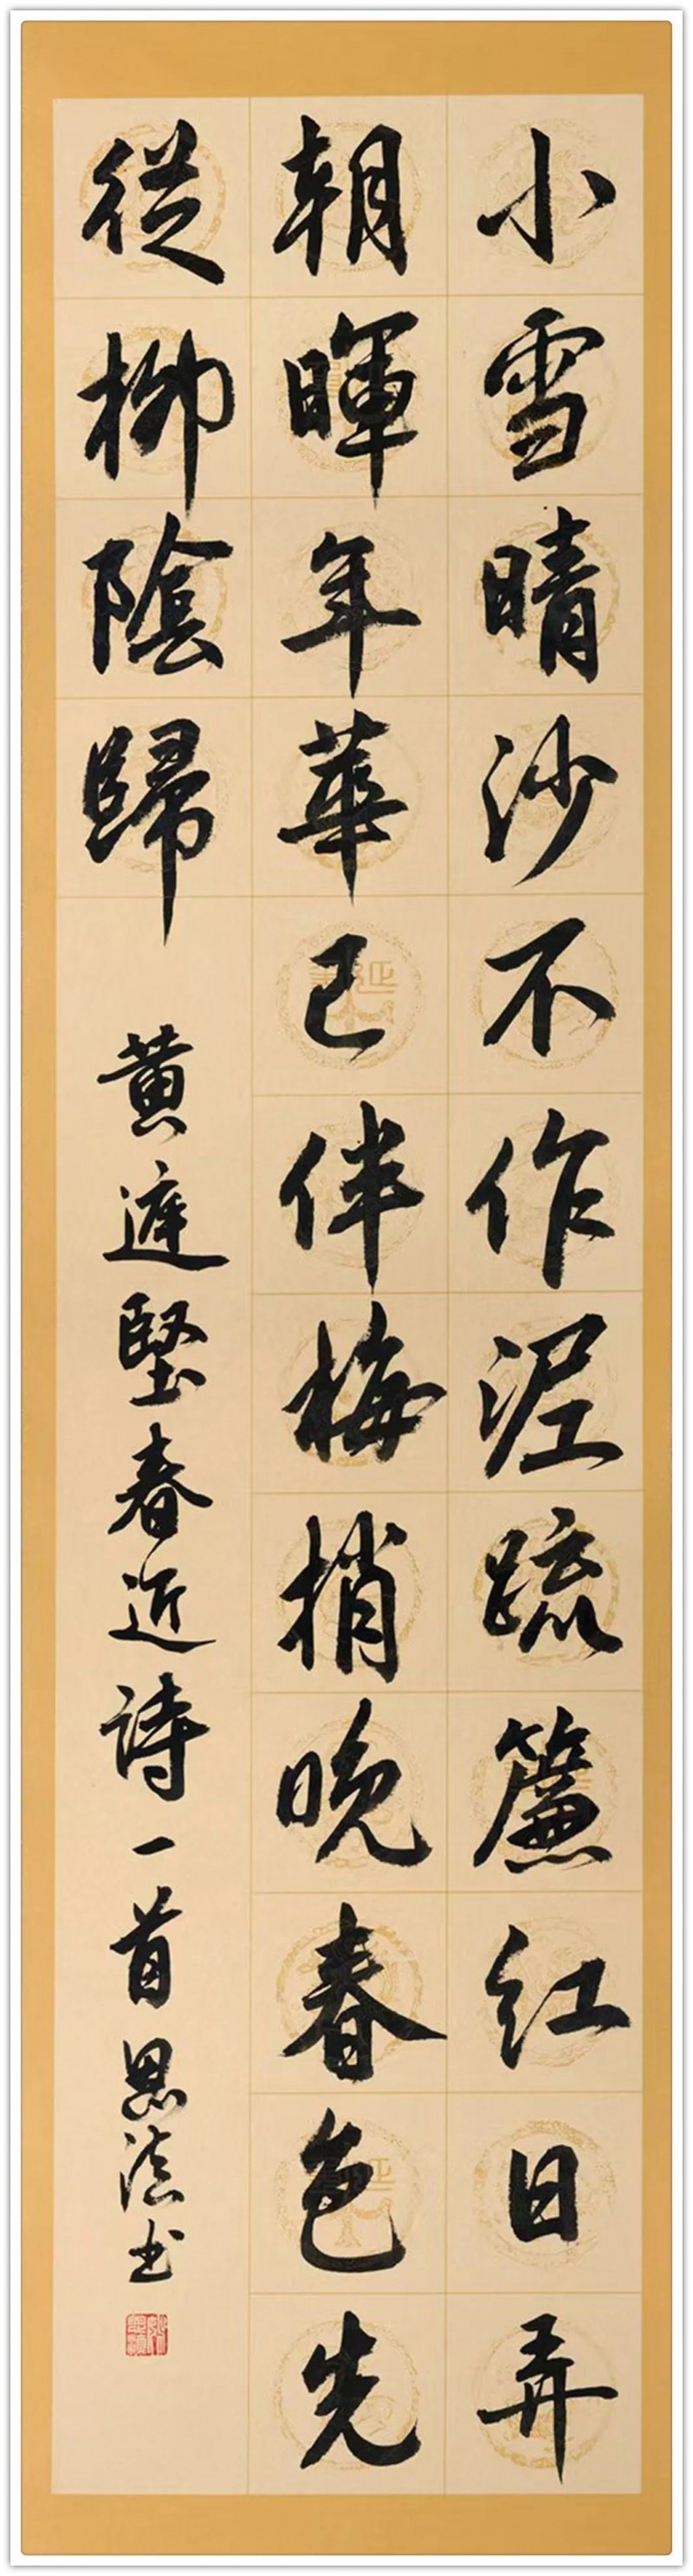 小雪晴沙不作泥疏簾紅日弄
朝暉年華已伴梅梢晚春色先
從柳陰歸
黃庭堅春近詩一首思滇书